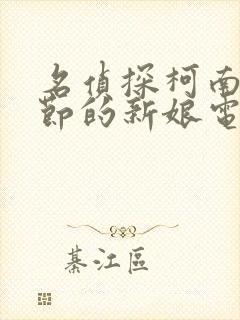 名偵探柯南
節的新娘電
綦江區